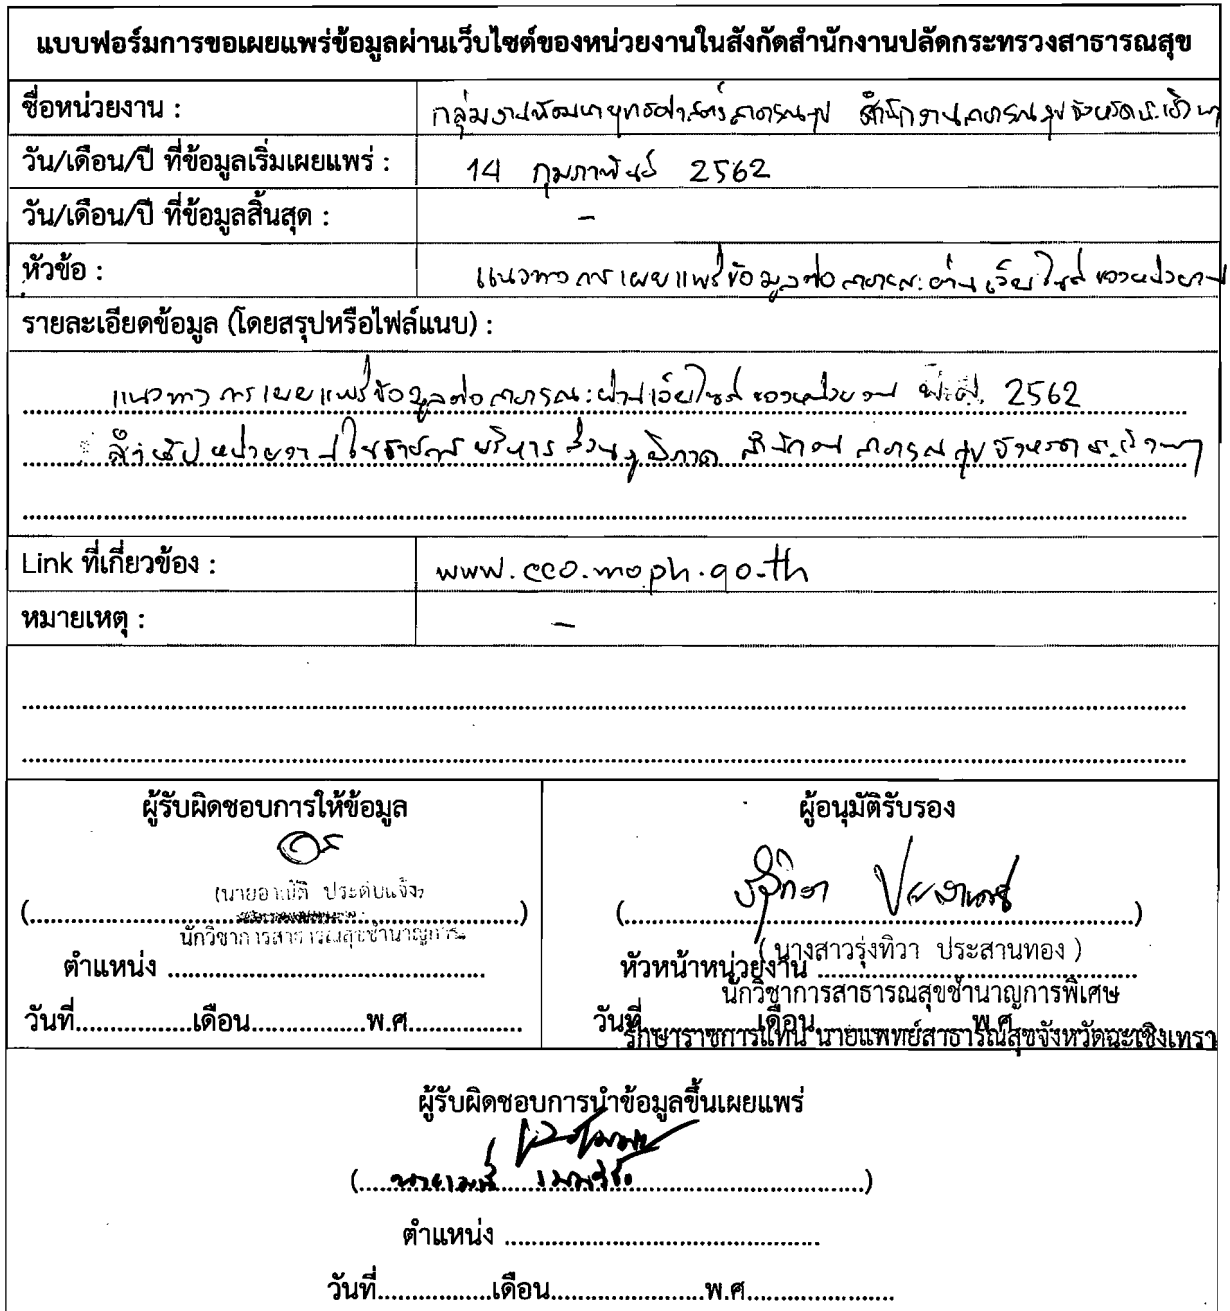 แบบฟอร์มการขอเผยแพร่ข้อมูลผ่านเว็บไซต์ของหน่วยงานในสังกัดสำนักงานปลัดกระทรวงสาธารณสุข
ชื่อหน่วยงาน : กลุ่มงานพัฒนายุทธศาสตร์สาธารณสุข สำนักงานสาธารณสุขจังหวัดฉะเชิงเทรา
วัน/เดือน/ปี ที่ข้อมูลเริ่มเผยแพร่ : 14 กุมภาพันธ์ 2562
วัน/เดือน/ปี ที่ข้อมูลสิ้นสุด : -
หัวข้อ : แนวทางการเผยแพร่ข้อมูลต่อสาธารณะผ่านเว็บไซต์ของหน่วยงาน
รายละเอียดข้อมูล (โดยสรุปหรือไฟล์แนบ) :
แนวทางการเผยแพร่ข้อมูลต่อสาธารณะผ่านเว็บไซต์ของหน่วยงาน พ.ศ. 2562
สำหรับหน่วยงานในราชการบริหารส่วนภูมิภาค สำนักงานสาธารณสุขจังหวัดฉะเชิงเทรา
Link ที่เกี่ยวข้อง : www.cco.moph.go.th
หมายเหตุ : -
ผู้รับผิดชอบการให้ข้อมูล
(นาย ประดับแจ้ง)
นักวิชาการสาธารณสุขชำนาญการ
ตำแหน่ง
วันที่ เดือน พ.ศ.
ผู้อนุมัติรับรอง
( นางสาวรุ่งทิวา ประสานทอง )
หัวหน้าหน่วยงาน
นักวิชาการสาธารณสุขชำนาญการพิเศษ
วันที่ เดือน พ.ศ.
รักษาราชการแทน นายแพทย์สาธารณสุขจังหวัดฉะเชิงเทรา
ผู้รับผิดชอบการนำข้อมูลขึ้นเผยแพร่
ตำแหน่ง
วันที่ เดือน พ.ศ.